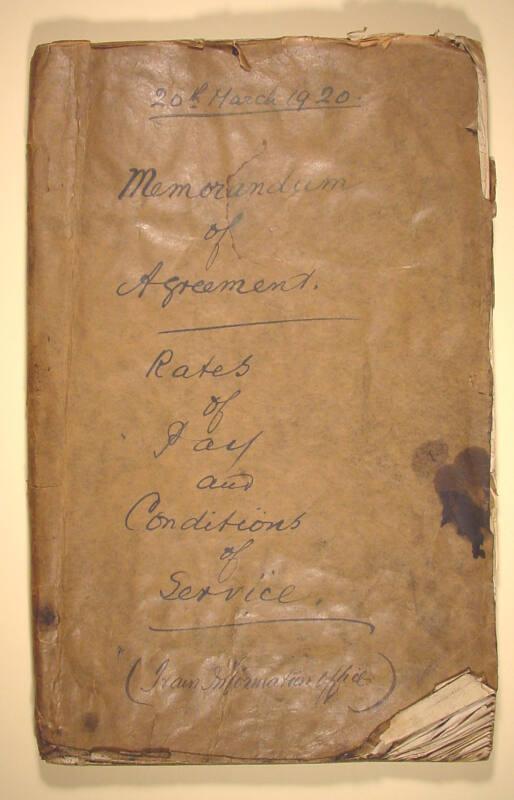 20th March 1920.
Memorandum
of
Agreement.
Rates
of
Pay
and
Conditions
of
Service.
(Train Information Office)